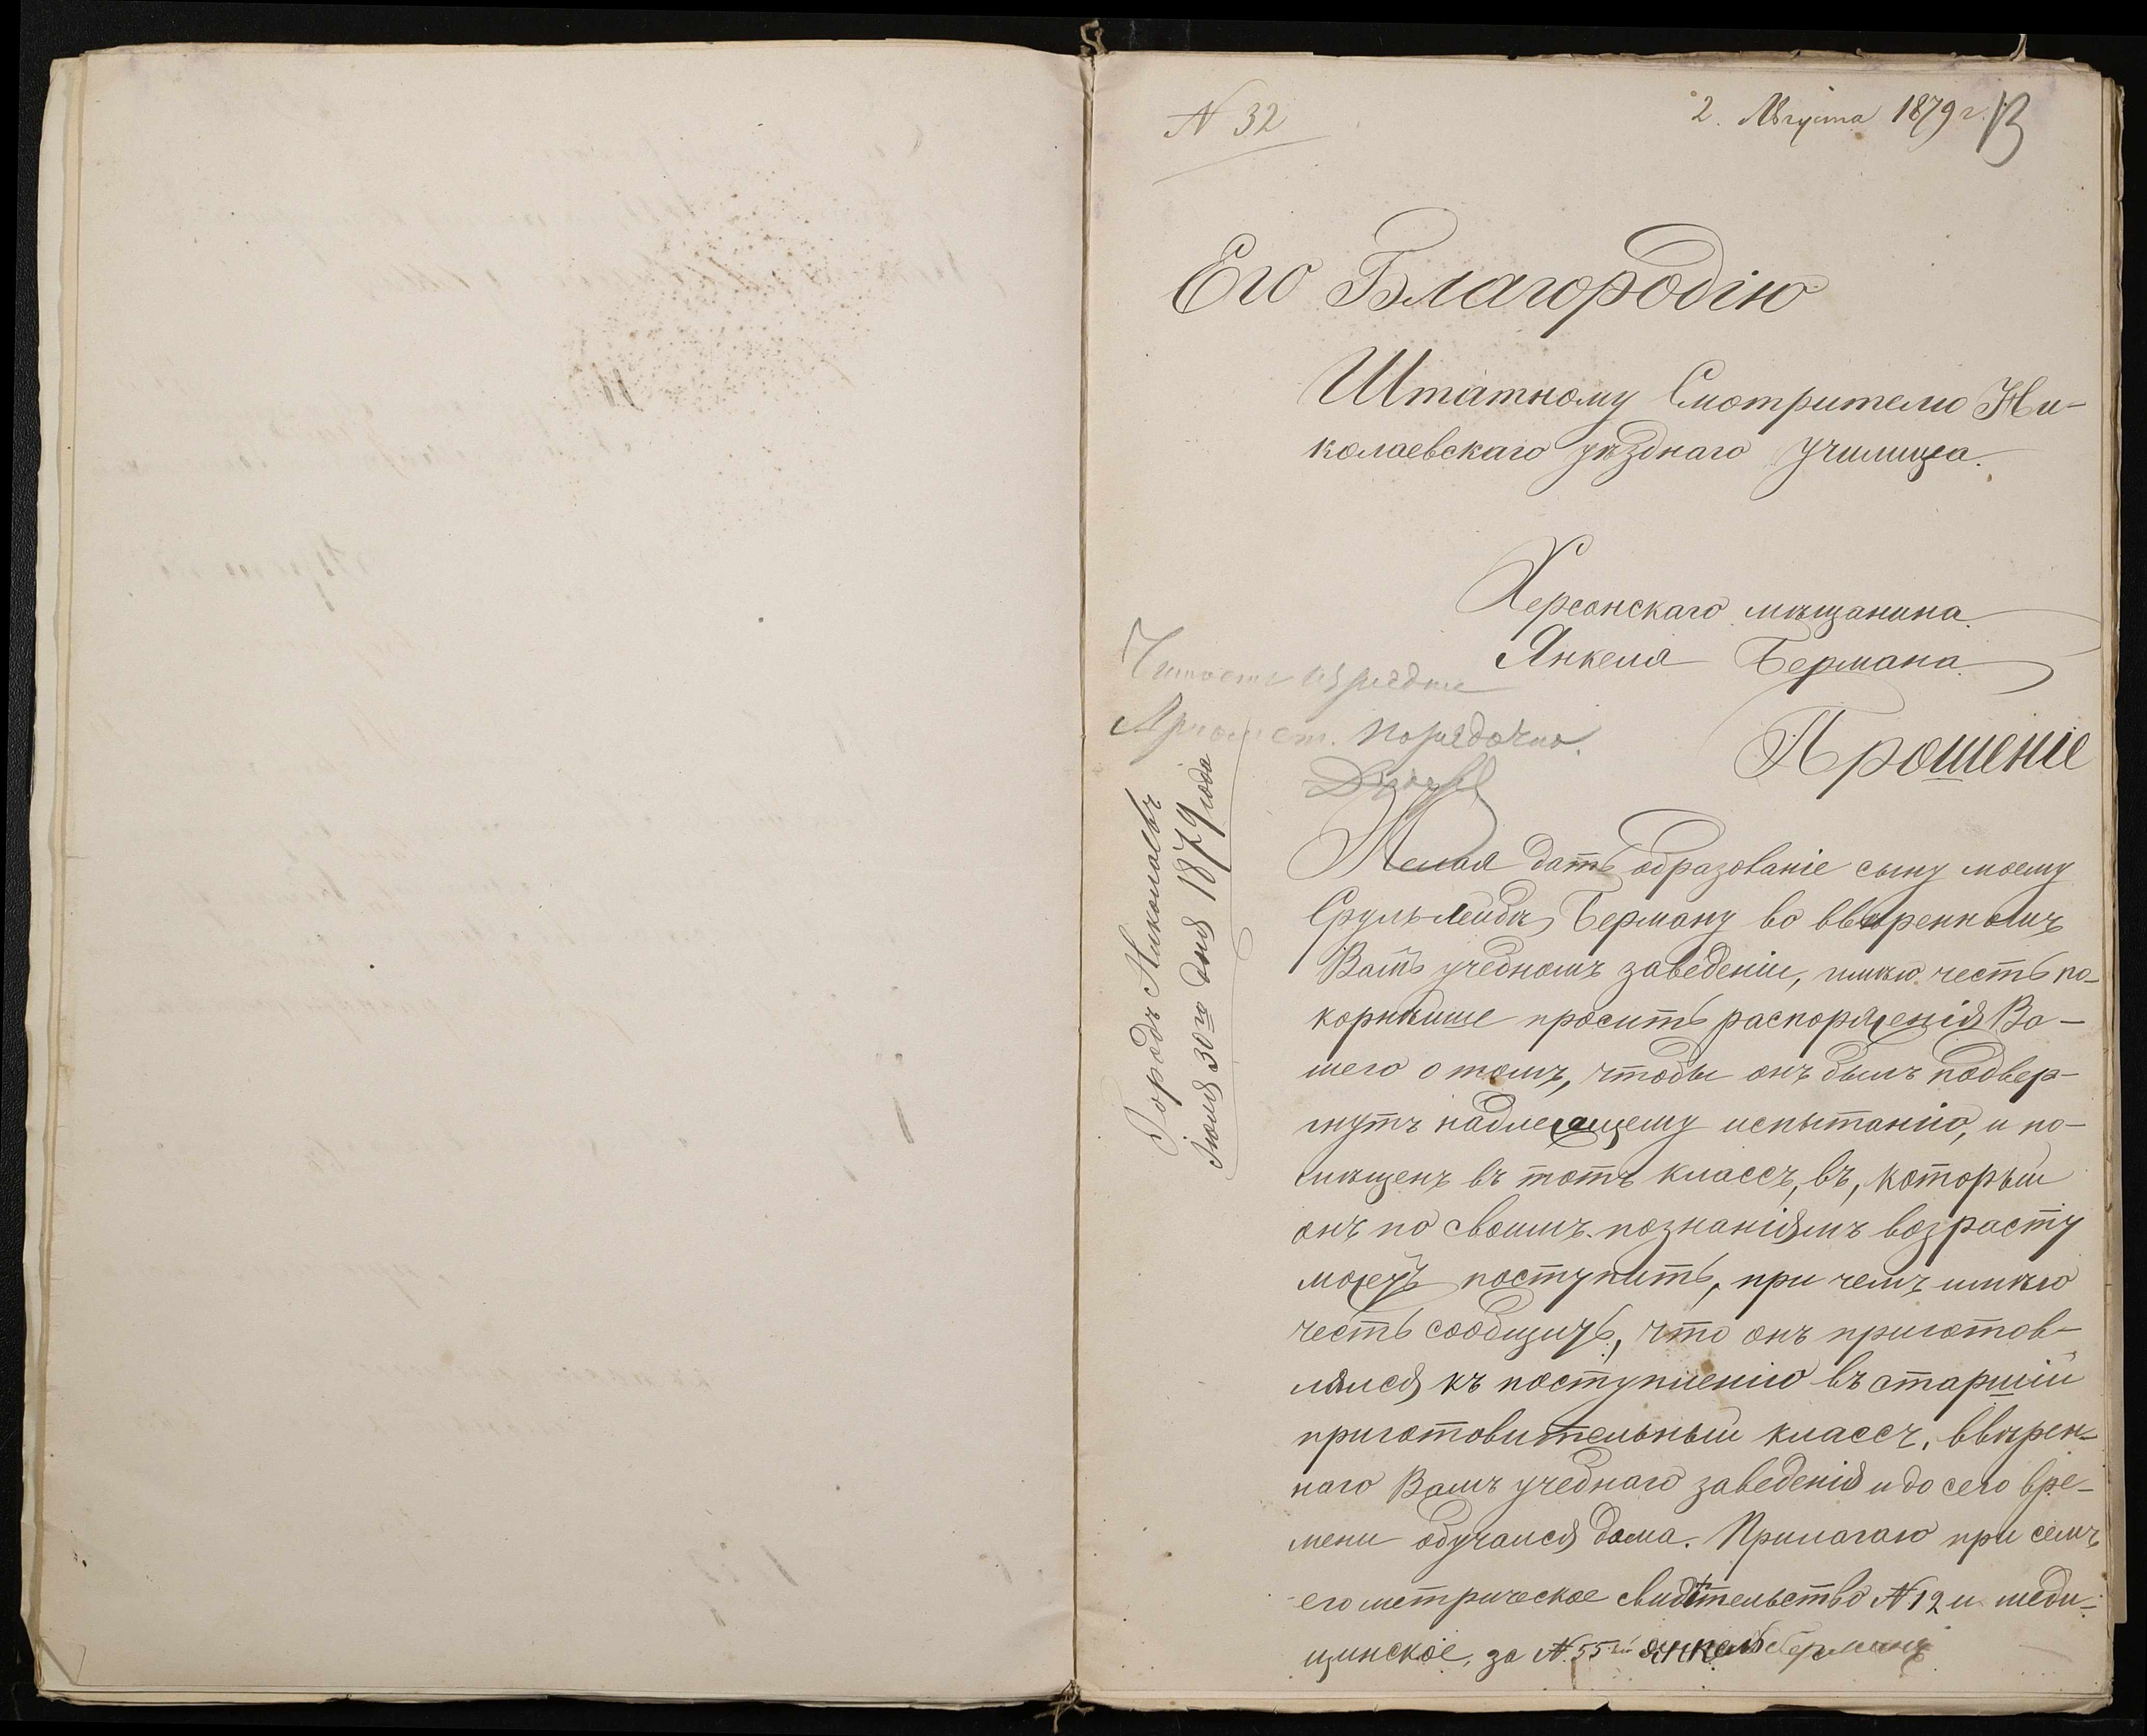 N 32
2. Августа 1879 г.
Его Благородію
Штатному Смотрителю Ни-
колаевскаго уѣзднаго училища.
Херсонскаго мѣщанина
Янкеля Бермана
Читаетъ изрядно
Ариѳмет. порядочно.
Прошеніе
Городъ Николаевъ
Іюля 30го дня 1879 года
Желая дать образованіе сыну моему
Сруль Лейбѣ Берману во ввѣренномъ
Вамъ учебномъ заведеніи, имѣю честь по-
корнѣише просить распоряженія Ва-
шего о томъ, чтобы онъ былъ подвер-
гнутъ надлежащему испытанію, и по-
мѣщенъ въ тотъ классъ, въ, который
онъ по своимъ познаніямъ возрасту
можетъ поступить, при чемъ имѣю
честь сообщить, что онъ приготов-
лялся къ поступленію въ старшій
приготовительный классъ, ввѣрен-
наго Вамъ учебнаго заведенія и до сего вре-
мени обучался дома. Прилагаю при семъ
его метрическое свидѣтельство N 12 и меди-
цинское, за N. 55 Янкель Берманъ